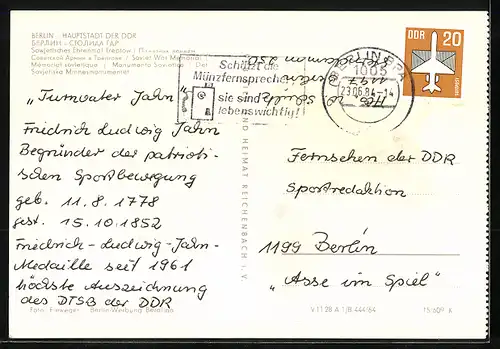 BERLIN HAUPTSTADT DER DDR
БЕРЛИН - СТОЛИЦА ГДР
Sowjetisches Ehrenmal Treptow
Советской Армии в Трептове / Soviet War Memorial
Mémorial soviétique / Monumento Soviético / Det
Sovjetiske Mindesmonumentet
„Turnvater Jahn"
Friedrich Ludwig Jahn
Begründer der patrioti-
schen Sportbewegung
geb. 11.8.1778
gest. 15.10.1852
Friedrich-Ludwig-Jahn-
Medaille seit 1961
höchste Auszeichnung
des DTSB der DDR
Foto: Finweger Berlin-Werbung Berolina
BILD UND HEIMAT REICHENBACH i. V.
Schützt die
Münzfernsprecher
sie sind
lebenswichtig!
BERLIN BPA
1085
23.06.84-14
DDR 20
Fernsehen der DDR
Sportredaktion
1199 Berlin
„Asse im Spiel"
V 11 28 A 1/B 444/84 15/609 K